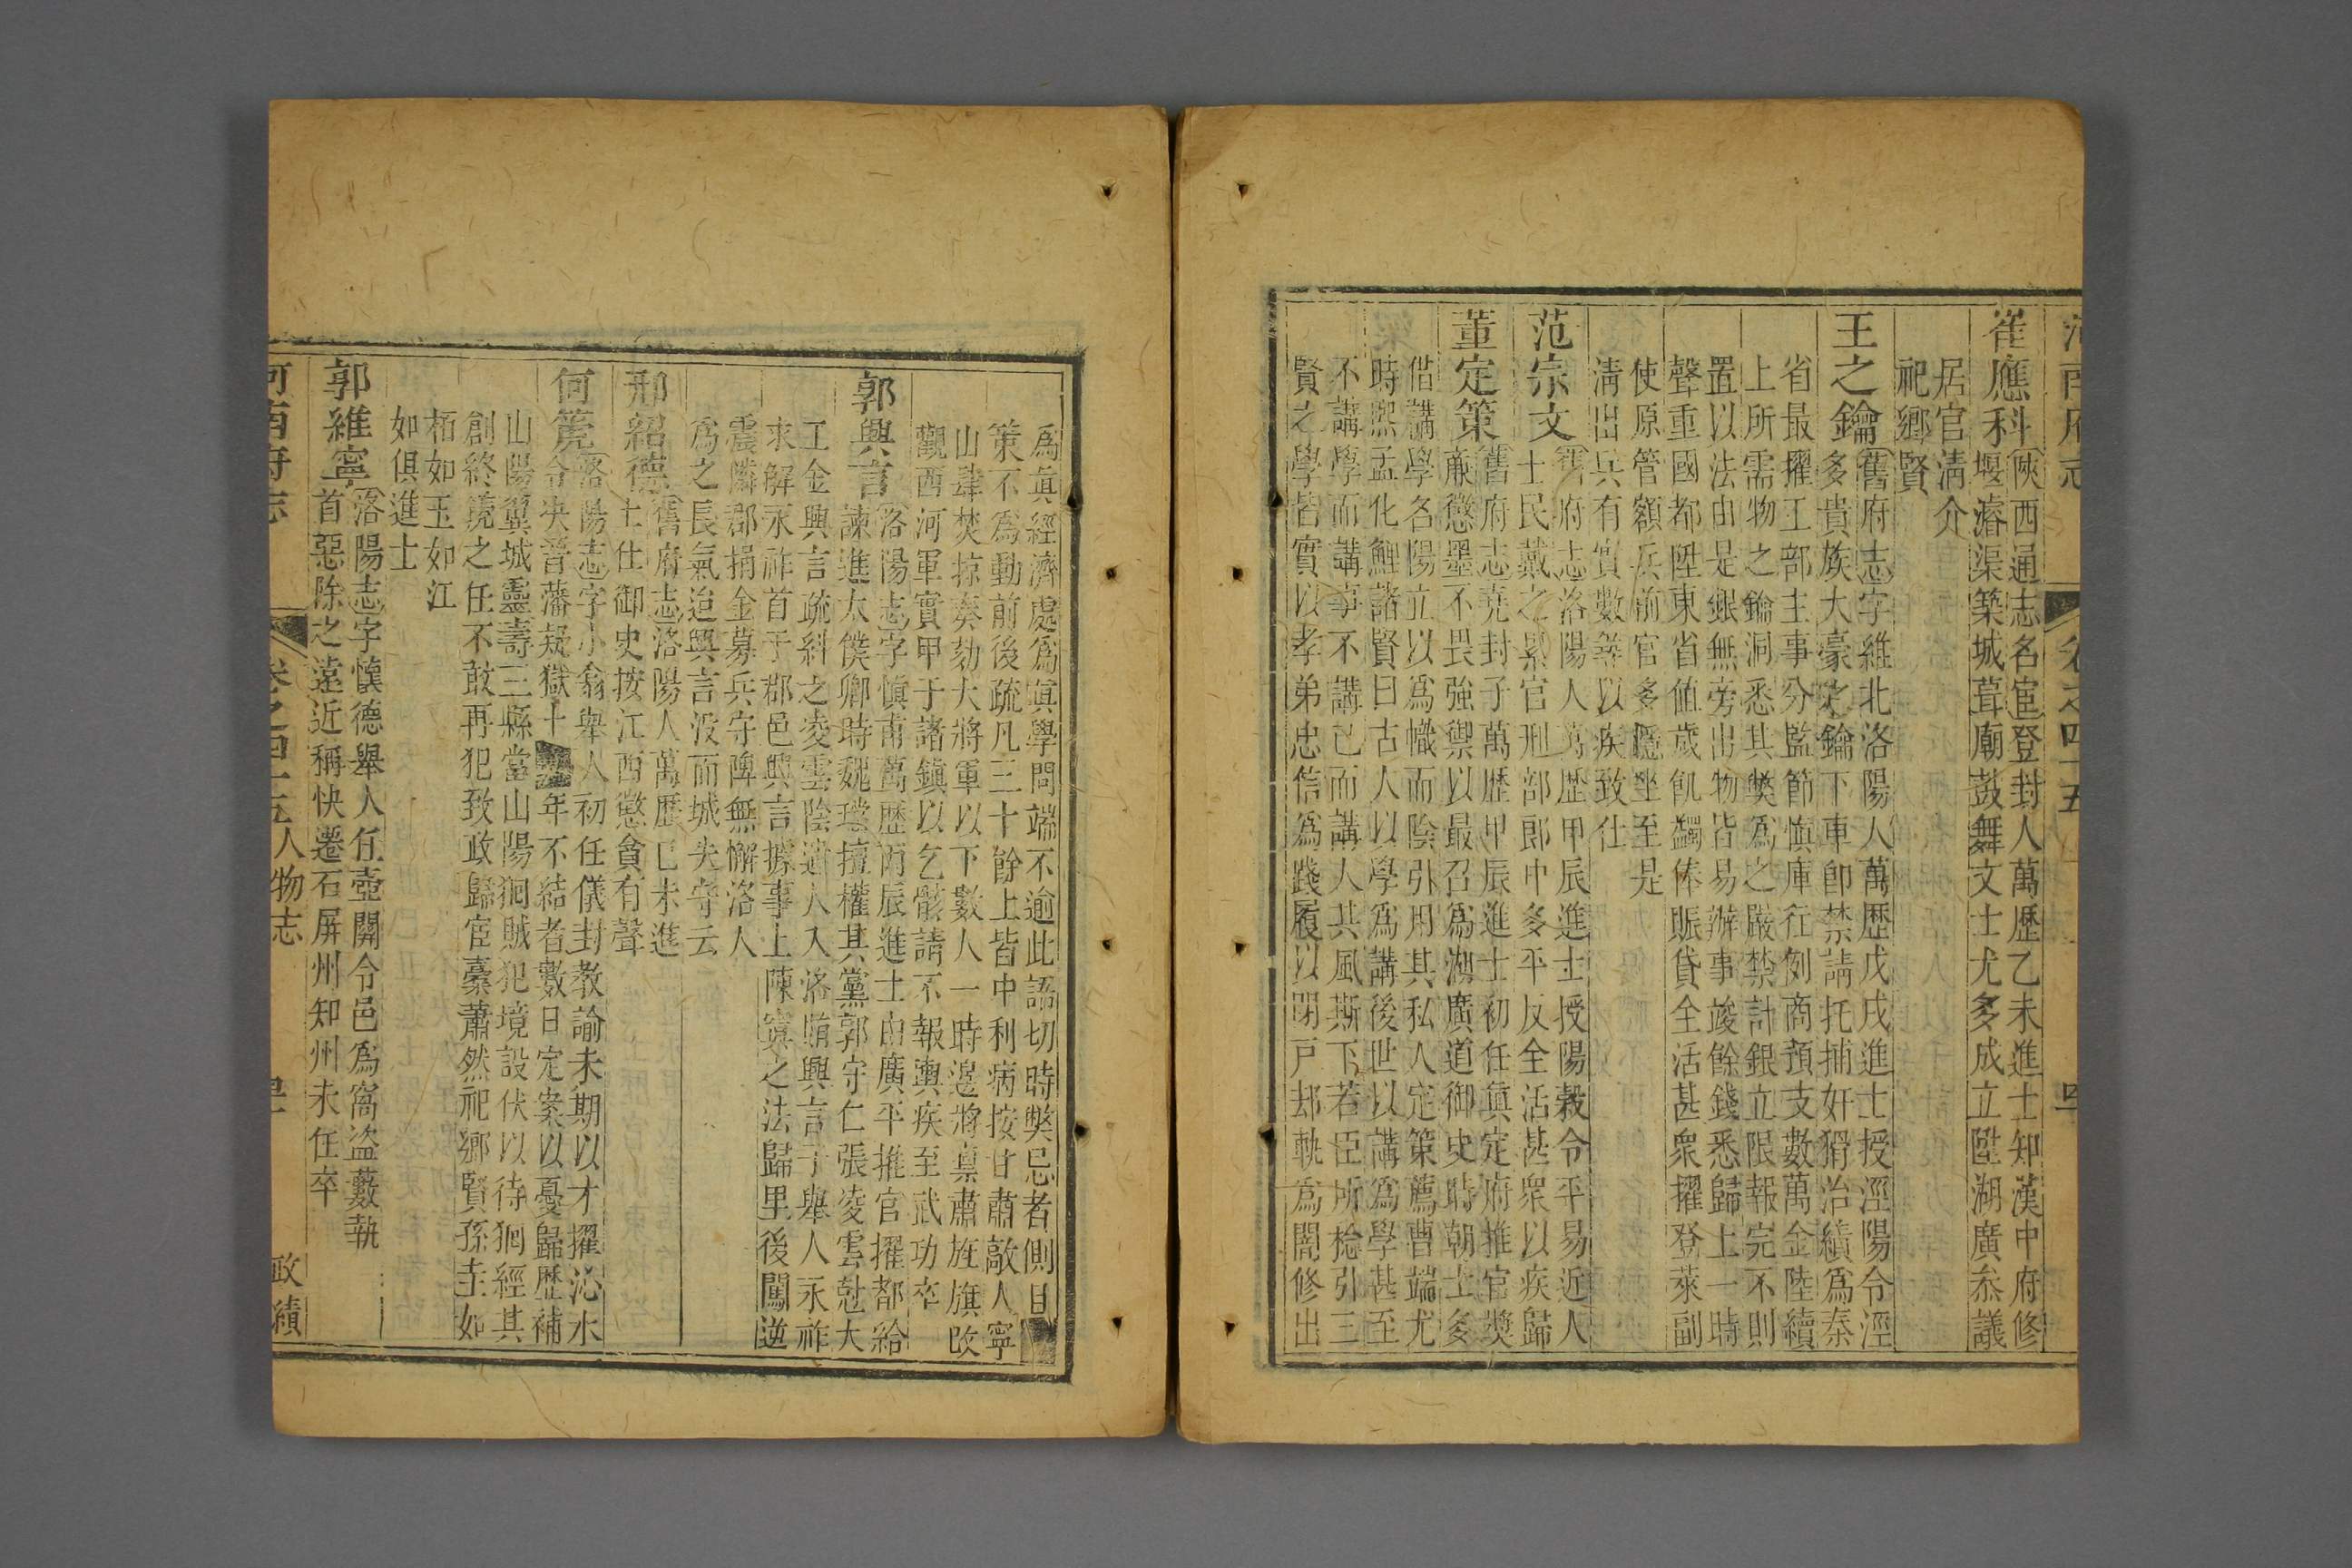 河南府志
卷之四十五
崔應科陝西通志名宦登封人萬歷乙未進士知漢中府修
堰濬渠築城葺廟鼓舞文士尤多成立陞湖廣叅議
居官清介
祀鄉賢
王之鑰舊府志字維北洛陽人萬歷戊戌進士授涇陽令涇
多貴族大豪之鑰下車卽禁請托捕奸猾治績爲秦
省最擢工部主事分監節慎庫往例商預支數萬金陸續
上所需物之鑰洞悉其獘爲之嚴禁計銀立限報完不則
置以法由是銀無旁出物皆易辦事竣餘錢悉歸上一時
聲重國都陞東省値歲飢蠲俸賑貸全活甚衆擢登萊副
使原管額兵前官多隱坐至是
淸出兵有實數尋以疾致仕
范宗文舊府志洛陽人萬歷甲辰進士授陽榖令平易近人
士民戴之累官刑部郎中多平反全活甚衆以疾歸
董定策舊府志堯封子萬歷甲辰進士初任眞定府推官奬
亷懲墨不畏強禦以最召爲湖廣道御史時朝士多
偕講學名陽立以爲幟而陰引用其私人定策薦曹端尤
時熙孟化鯉諸賢曰古人以學爲講後世以講爲學甚至
不講學而講事不講己而講人其風斯下若臣所捻引三
賢之學皆實以孝弟忠信爲踐履以閉戸却軌爲闇修出
爲眞經濟處爲眞學問端不逾此語切時獘忌者側目
策不爲動前後疏凡三十餘上皆中利病按甘肅敵人寧
山肆焚掠奏劾大將軍以下數人一時邊將稟肅旌旗改
觀西河軍實甲于諸鎭以乞骸請不報輿疾至武功卒
郭興言洛陽志字愼甫萬歷丙辰進士由廣平推官擢都給
諫進太僕卿時魏璫擅權其黨郭守仁張凌雲尅大
工金興言疏糾之凌雲陰遣人入洛賄興言子舉人永祚
求解永祚首于郡邑興言據事上陳寘之法歸里後闖逆
震隣郡捐金募兵守陴無懈洛人
爲之長氣迨興言沒而城失守云
邢紹德舊府志洛陽人萬歷己未進
士仕御史按江西懲貪有聲
何𥳑洛陽志字小翁舉人初任儀封教諭未期以才擢沁水
令决晉藩疑獄十年不結者數日定案以憂歸歷補
山陽翼城靈壽三縣當山陽猾賊犯境設伏以待猾經其
創終𥳑之任不敢再犯致政歸宦橐蕭然祀鄉賢孫圭如
栢如玉如江
如俱進士
郭維寧洛陽志字愼德舉人任壺關令邑爲窩盜藪執
首惡除之遠近稱快遷石屏州知州未任卒
河南府志
卷之四十五人物志
政績